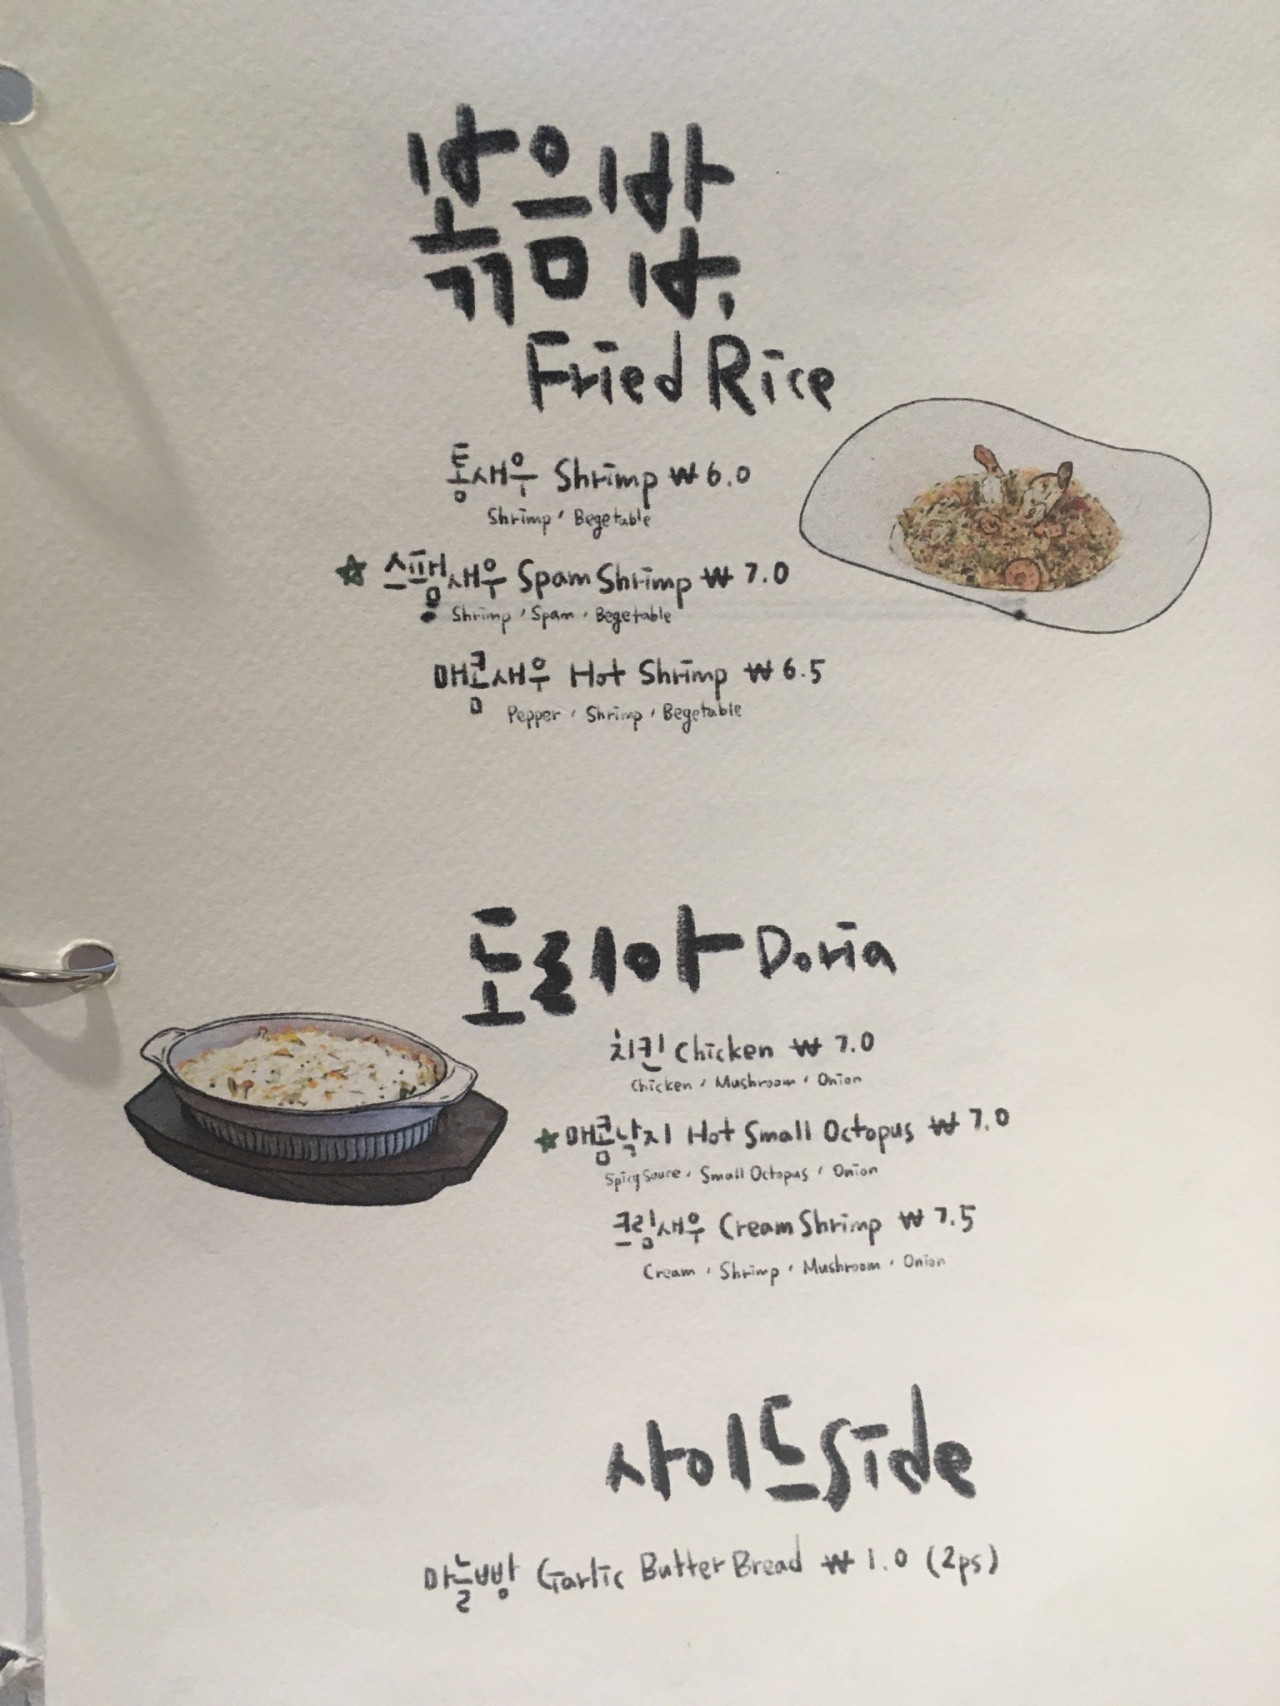 볶음밥
Fried Rice
통새우 Shrimp ₩6.0
Shrimp, Begetable
☆ 스팸새우 Spam Shrimp ₩ 7.0
Shrimp, Spam, Begetable
매콤새우 Hot Shrimp ₩6.5
Pepper, Shrimp, Begetable
도리아 Doria
치킨 Chicken ₩ 7.0
Chicken, Mushroom, Onion
☆ 매콤낙지 Hot Small Octopus ₩ 7.0
Spicy Sauce, Small Octopus, Onion
크림새우 Cream Shrimp ₩ 7.5
Cream, Shrimp, Mushroom, Onion
사이드 Side
마늘빵 Garlic Butter Bread ₩ 1.0 (2ps)